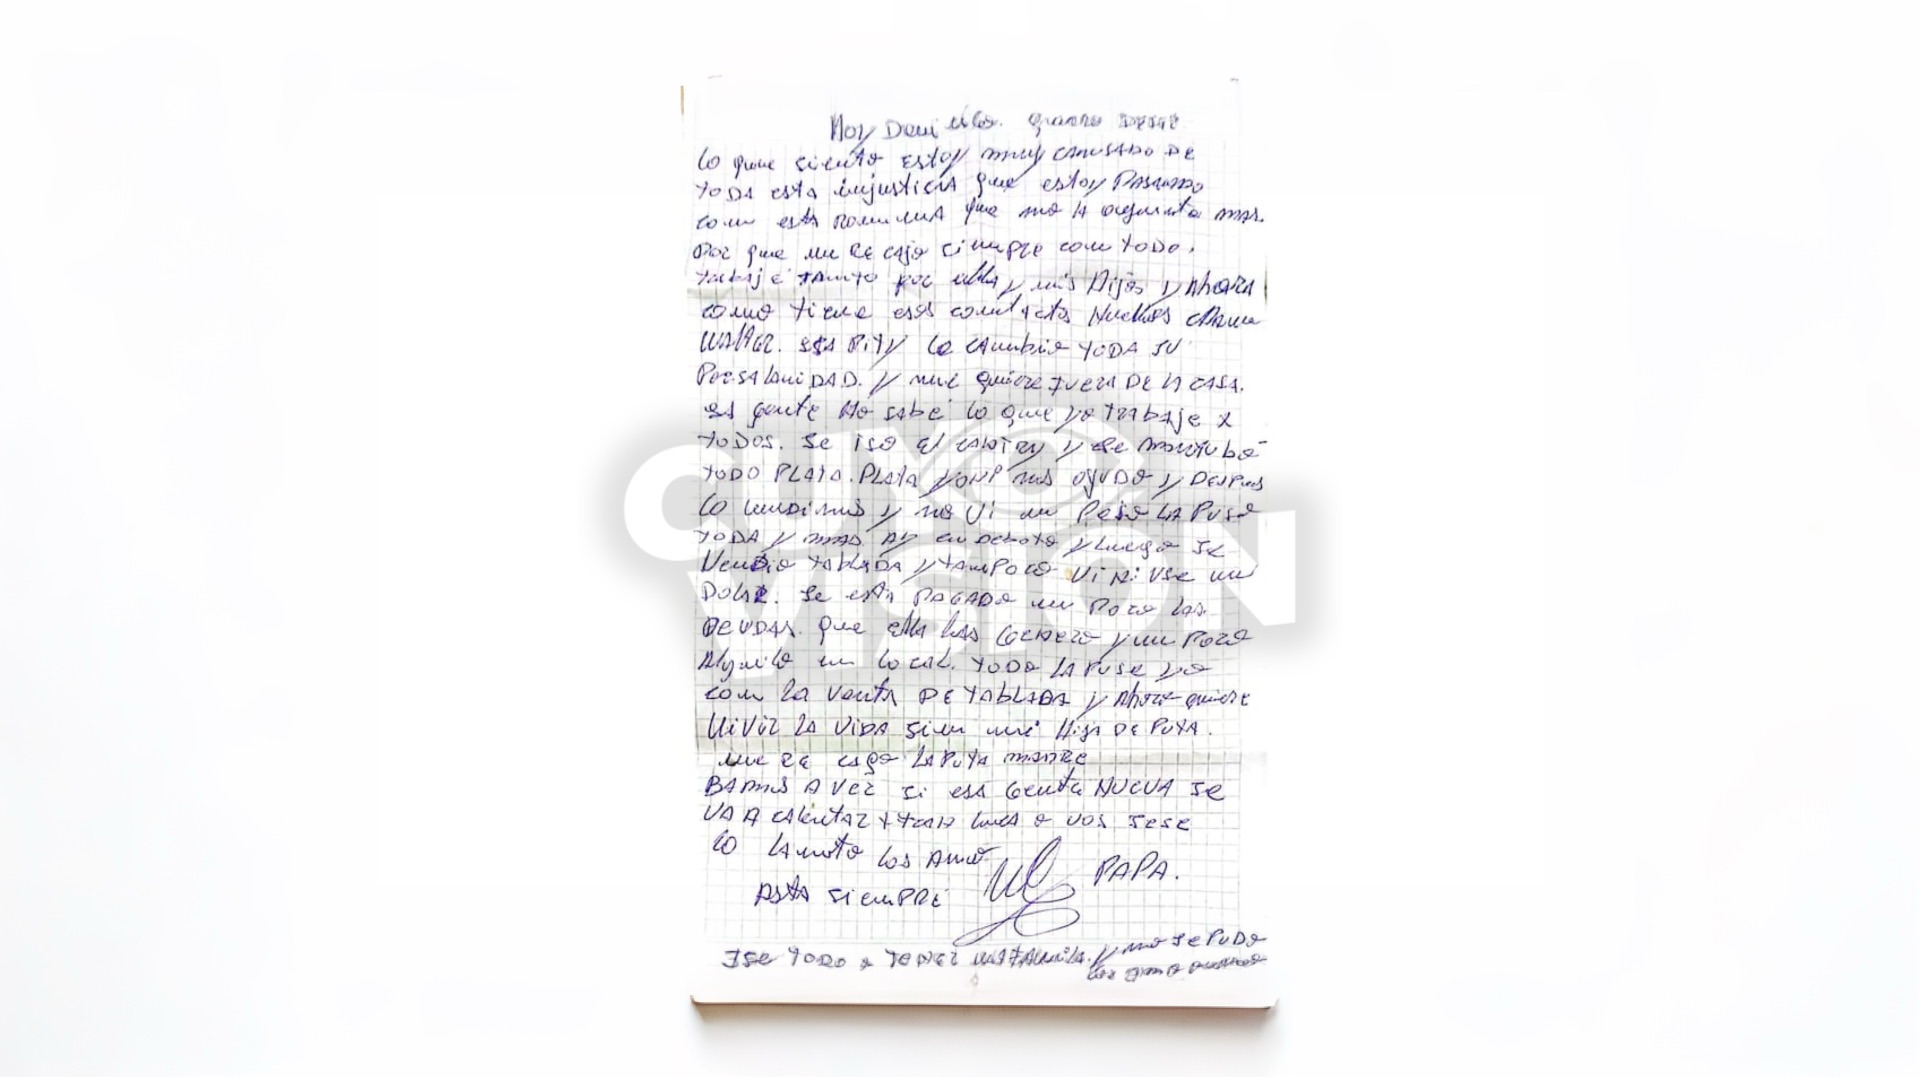 Hoy Domingo. quiero
lo que siento estoy muy cansado DE
TODA esta injusticia que estoy PASANDO
con esta que no la aguanto mas.
Por que me RE cago siempre con TODO.
trabaje TANTO por ella y mis Hijos y Ahora
como tiene esos contactos Nuevos
WALTER. ESA PITY le cambio TODA SU
PersaluiDAD. y me quiere FUERA DE LA CASA.
esa gente No SABE lo que yo trabaje x
TODOS. Se iso el y se
TODO PLATA. PLATA y mas AyuDo y DESPUES
lo vendimos y no vi un Peso LA PUSE
TODA y mas. y Luego se
Vendio TABLADA y TAMPOCO Vi Ni USE un
DOLAR. Se esta PAGADO un POCO las
DEUDAS. que ella las Genero y un POCO
Alquilo un local. TODO LA PUSE yo
con la Venta DE TABLADA y Ahora quiere
ViViR LA VIDA sin mi Hija DE PUTA.
me RE cago LA PUTA MADRE
BAMOS A VER si esa Gente NUEVA SE
VA A calentar x vos
lo lamoto los Amo
PAPA.
Asta siempre
Ise TODO x TENER una FAMILIA. y no se PUDO
CUYO
VISION